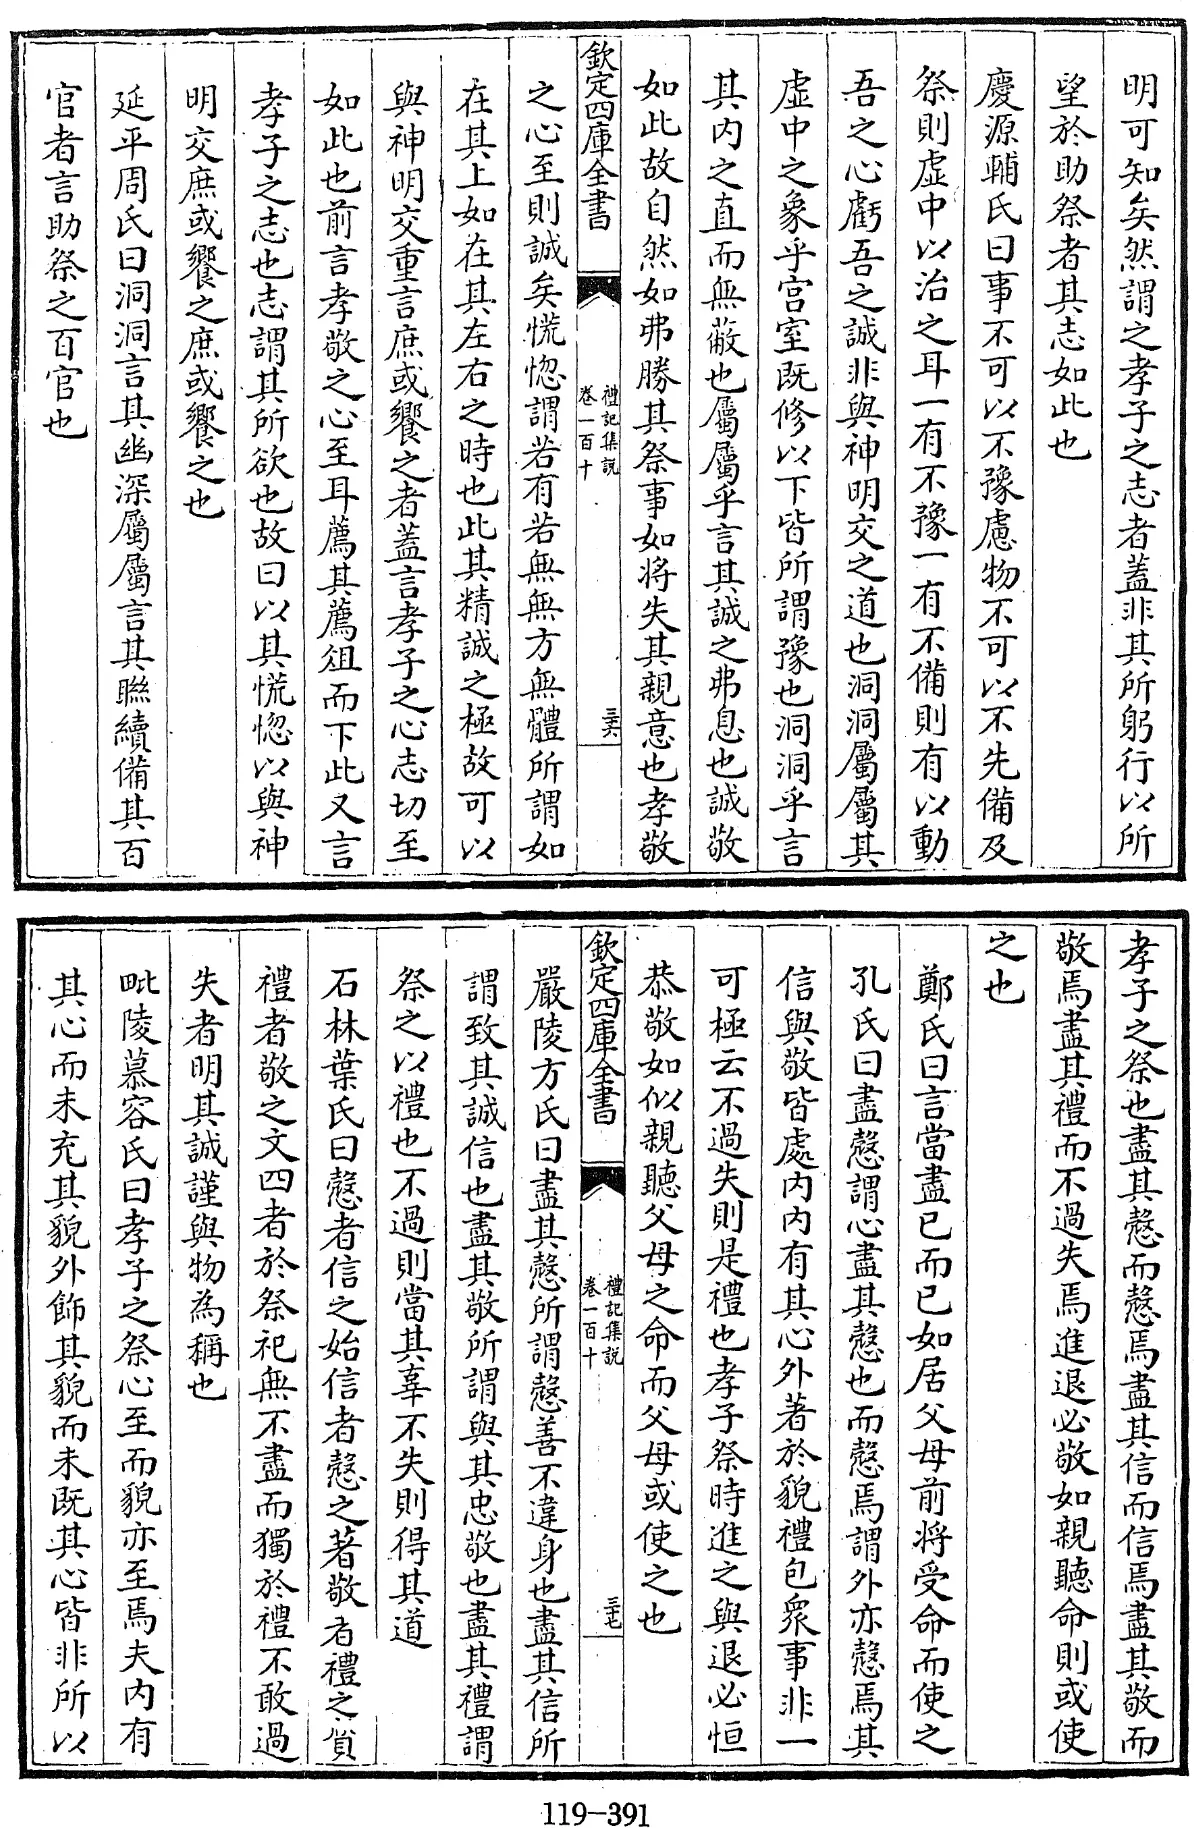 明可知矣然謂之孝子之志者蓋非其所躬行以所
望於助祭者其志如此也
慶源輔氏曰事不可以不豫慮物不可以不先備及
祭則虛中以治之耳一有不豫一有不備則有以動
吾之心虧吾之誠非與神明交之道也洞洞屬屬其
虛中之象乎宫室既修以下皆所謂豫也洞洞乎言
其内之直而無蔽也屬屬乎言其誠之弗息也誠敬
如此故自然如弗勝其祭事如將失其親意也孝敬
欽定四庫全書
禮記集說
卷一百十
三六
之心至則誠矣慌惚謂若有若無無方無體所謂如
在其上如在其左右之時也此其精誠之極故可以
與神明交重言庶或饗之者蓋言孝子之心志切至
如此也前言孝敬之心至耳薦其薦俎而下此又言
孝子之志也志謂其所欲也故曰以其慌惚以與神
明交庶或饗之庶或饗之也
延平周氏曰洞洞言其幽深屬屬言其聯續備其百
官者言助祭之百官也
孝子之祭也盡其慤而慤焉盡其信而信焉盡其敬而
敬焉盡其禮而不過失焉進退必敬如親聽命則或使
之也
鄭氏曰言當盡已而已如居父母前將受命而使之
孔氏曰盡慤謂心盡其慤也而慤焉謂外亦慤焉其
信與敬皆處内内有其心外著於貌禮包衆事非一
可極云不過失則是禮也孝子祭時進之與退必恒
恭敬如似親聽父母之命而父母或使之也
欽定四庫全書
禮記集說
卷一百十
三七
嚴陵方氏曰盡其慤所謂慤善不違身也盡其信所
謂致其誠信也盡其敬所謂與其忠敬也盡其禮謂
祭之以禮也不過則當其辜不失則得其道
石林葉氏曰慤者信之始信者慤之著敬者禮之質
禮者敬之文四者於祭祀無不盡而獨於禮不敢過
失者明其誠謹與物為稱也
毗陵慕容氏曰孝子之祭心至而貌亦至焉夫内有
其心而未充其貌外飾其貌而未既其心皆非所以
119-391